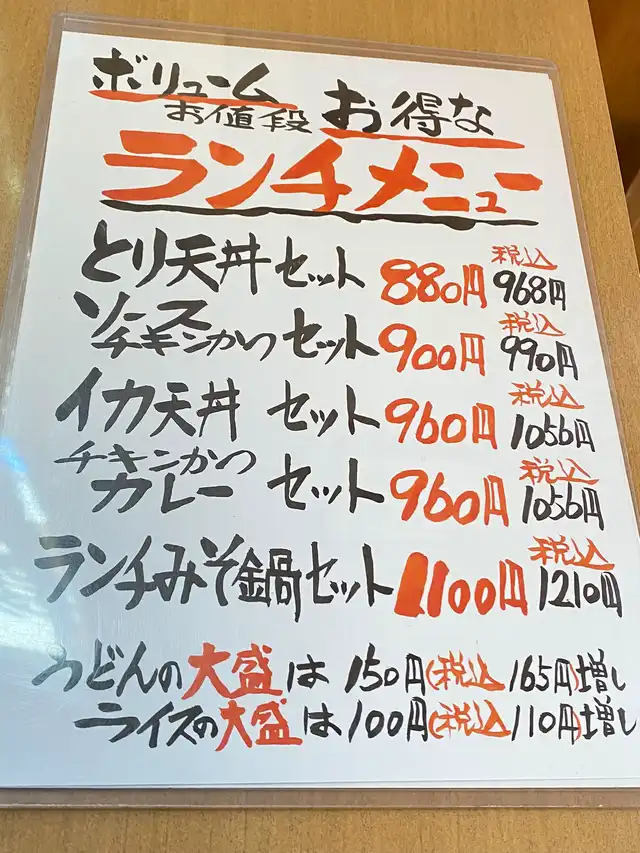 ボリューム
お値段 お得な
ランチメニュー
とり天丼 セット 880円 税込 968円
ソース
チキンかつ セット 900円 税込 990円
イカ天丼 セット 960円 税込 1056円
チキンかつ
カレー セット 960円 税込 1056円
ランチみそ鍋 セット 1100円 税込 1210円
うどんの大盛は 150円(税込 165円)増し
ライスの大盛は 100円(税込 110円)増し